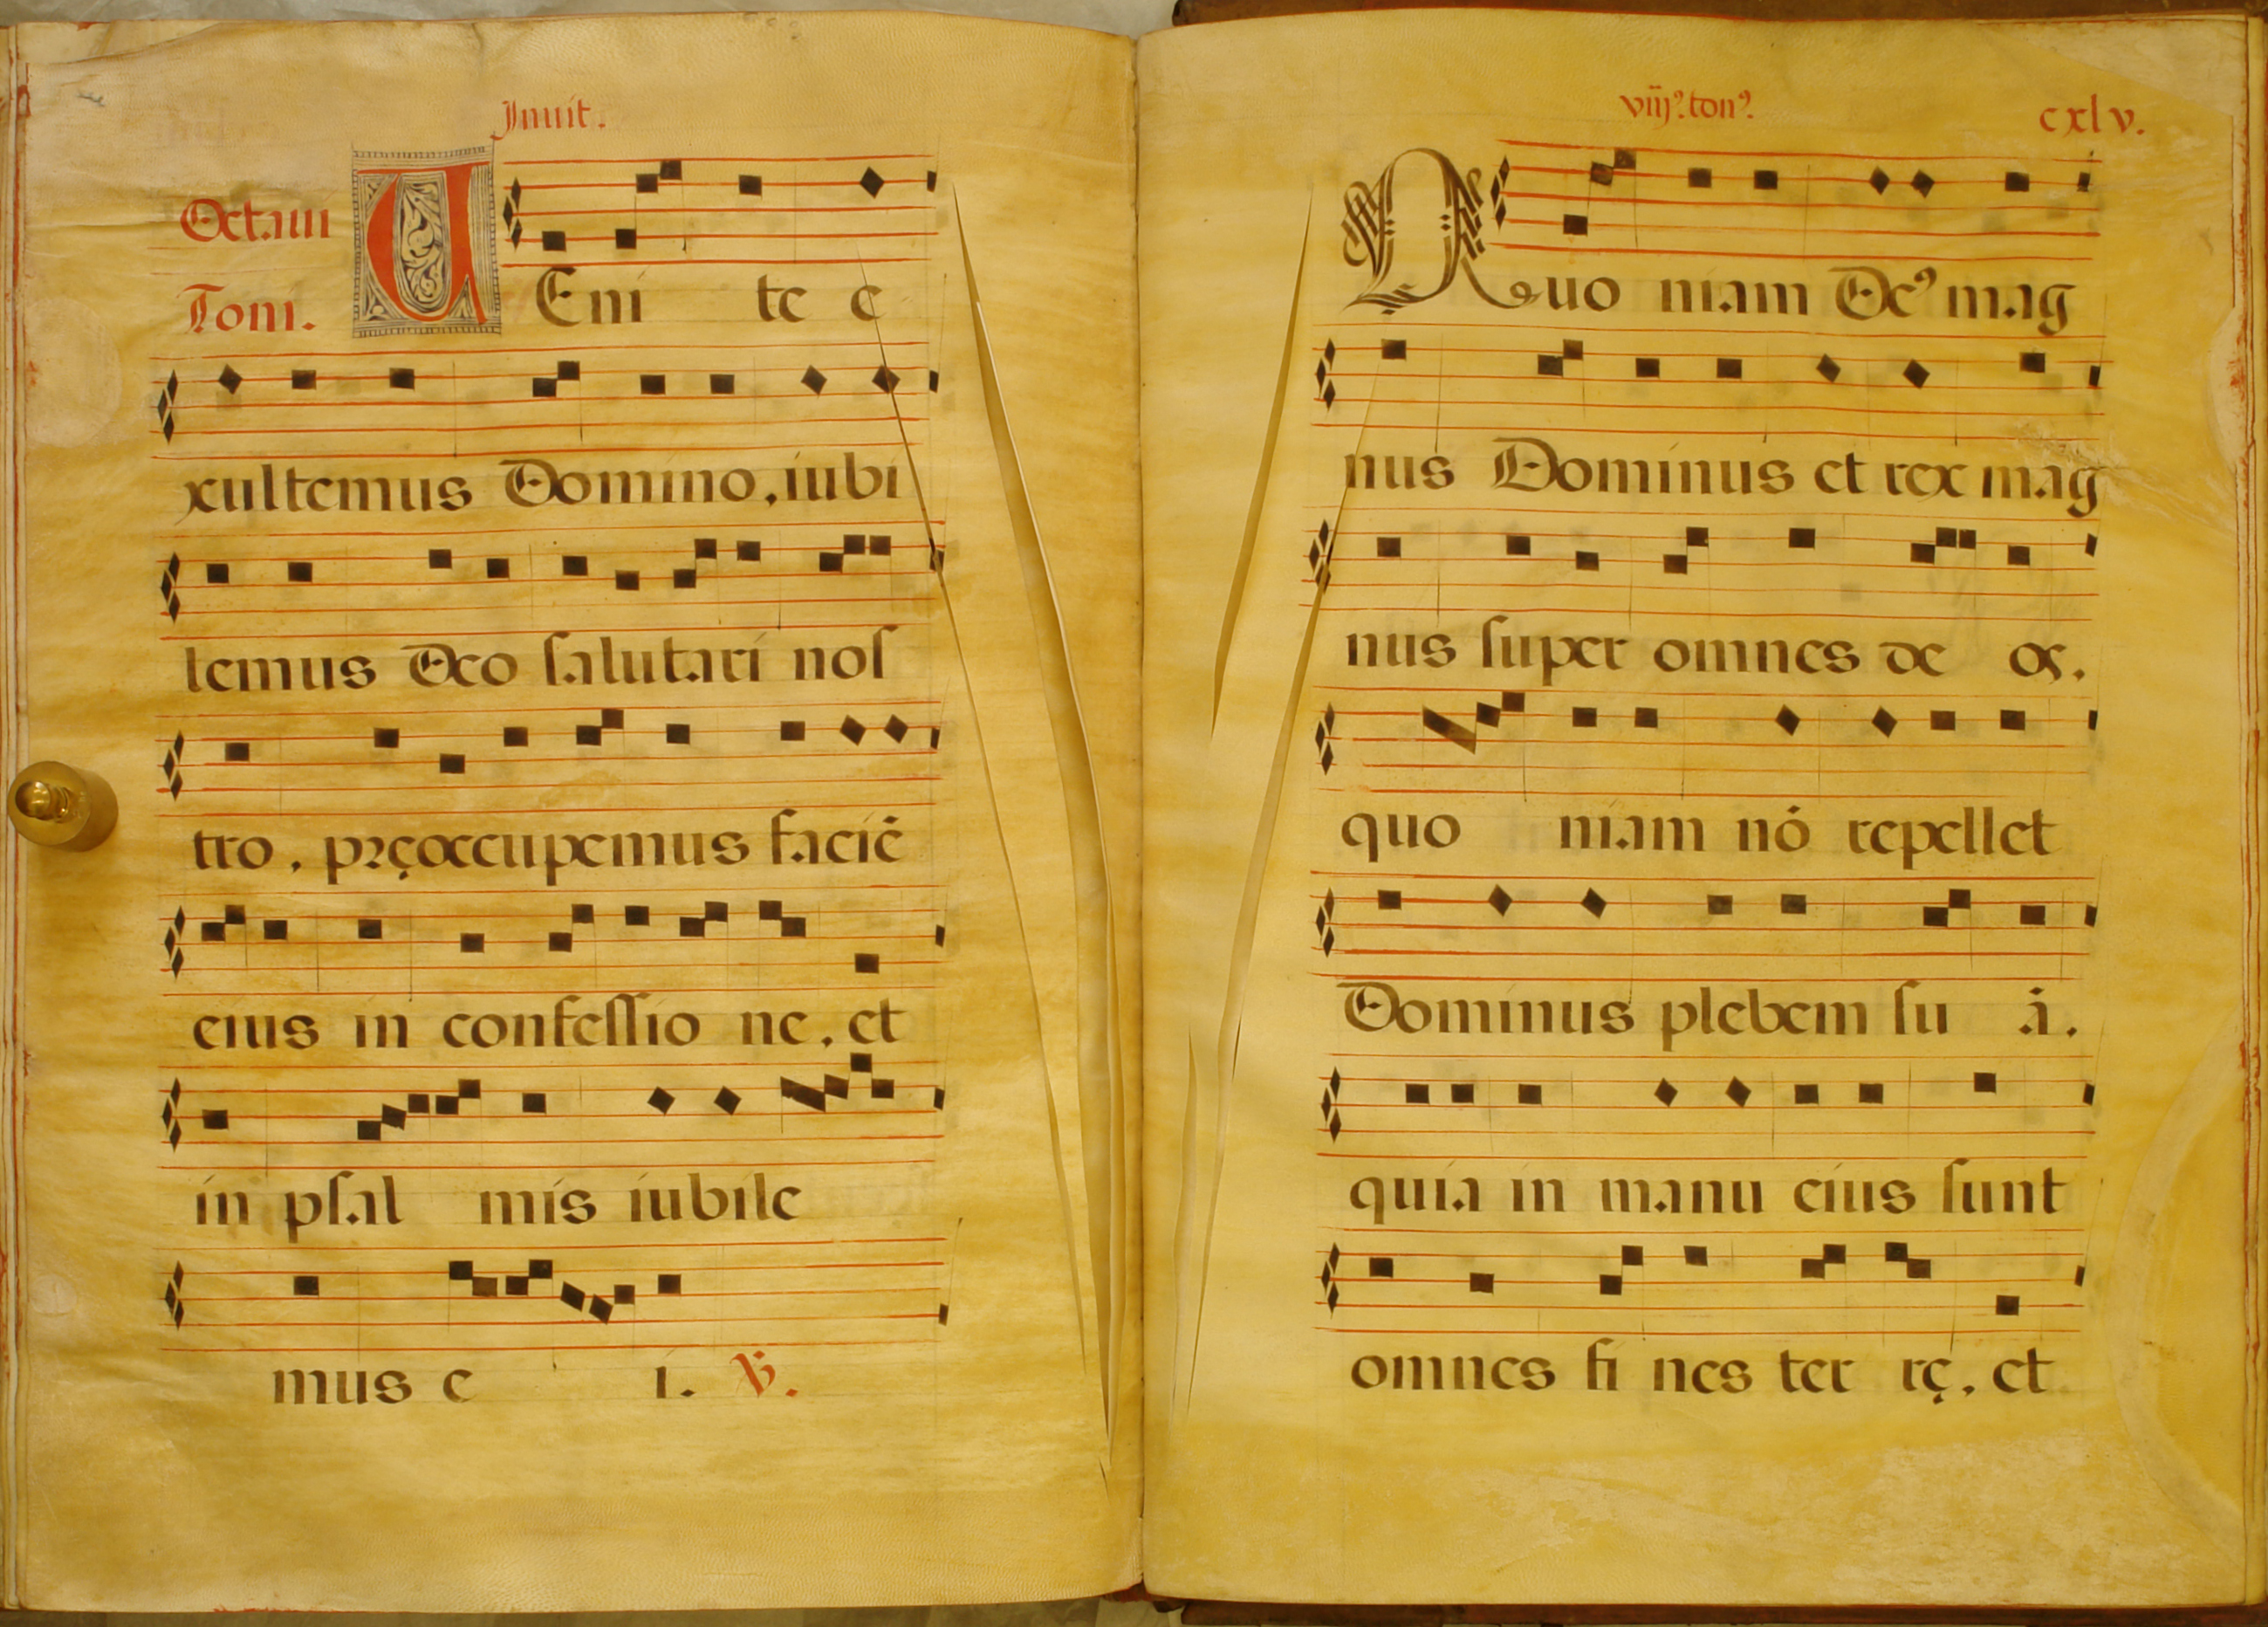 Inuit.
Octaui
Toni.
VEni te e
xultemus Domino, iubi
lemus Deo ſalutari noſ
tro, pręoccupemus faciē
eius in confeſſio ne, et
in pſal mis iubile
mus e i. ℣.
viij⁹. ton⁹. cxlv.
Quo niam De⁹ mag
nus Dominus et rex mag
nus ſuper omnes de os.
quo niam nō repellet
Dominus plebem ſu ā.
quia in manu eius ſunt
omnes fi nes ter rę, et